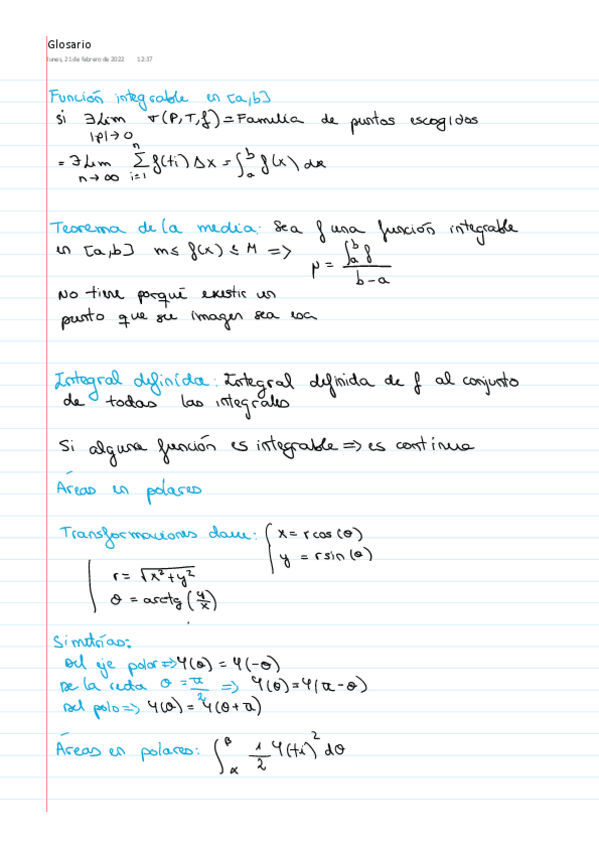 Glosario
lunes, 21 de febrero de 2022 12:37
Función integrable en [a,b]
si ∃ lim σ(P,T,f) = Familia de puntos escogidos
|p|→0
= ∃ lim n→∞ Σ i=1 n f(ti) Δx = ∫ₐᵇ f(x) dx
Teorema de la media: Sea f una función integrable
en [a,b] m ≤ f(x) ≤ M => μ = ∫ₐᵇ f / b-a
No tiene porqué existir un
punto que su imagen sea esa
Integral definida: Integral definida de f al conjunto
de todas las integrales
Si alguna función es integrable => es continua
Áreas en polares
Transformaciones clave: { x = r cos(θ)
y = r sin(θ)
{ r = √x²+y²
θ = arctg (y/x)
Simetrías:
Del eje polar => φ(θ) = φ(-θ)
De la recta θ = π/2 => φ(θ) = φ(π-θ)
Del polo => φ(θ) = φ(θ+π)
Áreas en polares: ∫ α β 1/2 φ(ti)² dθ